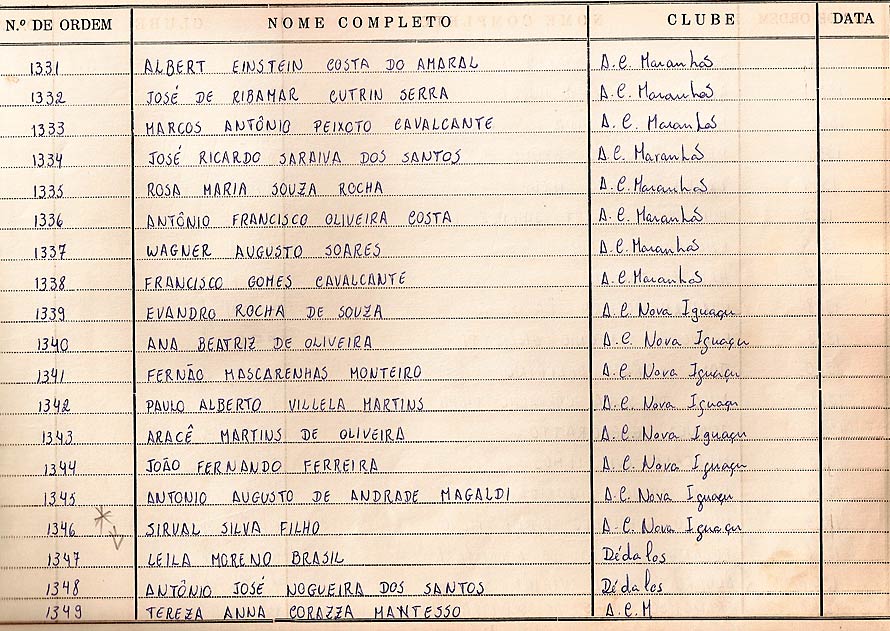 N.º DE ORDEM NOME COMPLETO CLUBE DATA
1331 ALBERT EINSTEIN COSTA DO AMARAL A.C. Maranhão
1332 JOSÉ DE RIBAMAR CUTRIN SERRA A.C. Maranhão
1333 MARCOS ANTÔNIO PEIXOTO CAVALCANTE A.C. Maranhão
1334 JOSÉ RICARDO SARAIVA DOS SANTOS A.C. Maranhão
1335 ROSA MARIA SOUZA ROCHA A.C. Maranhão
1336 ANTÔNIO FRANCISCO OLIVEIRA COSTA A.C. Maranhão
1337 WAGNER AUGUSTO SOARES A.C. Maranhão
1338 FRANCISCO GOMES CAVALCANTE A.C. Maranhão
1339 EVANDRO ROCHA DE SOUZA A.C. Nova Iguaçu
1340 ANA BEATRIZ DE OLIVEIRA A.C. Nova Iguaçu
1341 FERNÃO MASCARENHAS MONTEIRO A.C. Nova Iguaçu
1342 PAULO ALBERTO VILLELA MARTINS A.C. Nova Iguaçu
1343 ARACÊ MARTINS DE OLIVEIRA A.C. Nova Iguaçu
1344 JOÃO FERNANDO FERREIRA A.C. Nova Iguaçu
1345 ANTONIO AUGUSTO DE ANDRADE MAGALDI A.C. Nova Iguaçu
1346 SIRVAL SILVA FILHO A.C. Nova Iguaçu
1347 LEILA MORENO BRASIL Dédalos
1348 ANTÔNIO JOSÉ NOGUEIRA DOS SANTOS Dédalos
1349 TEREZA ANNA CORAZZA MANTESSO A.C.M